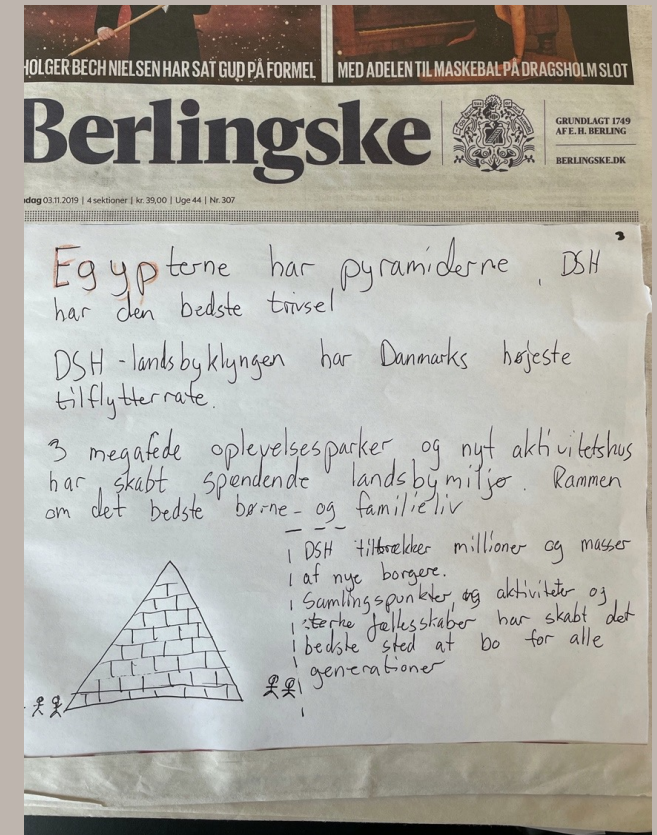 HOLGER BECH NIELSEN HAR SAT GUD PÅ FORMEL
MED ADELEN TIL MASKEBAL PÅ DRAGSHOLM SLOT
Berlingske
GRUNDLAGT 1749
AF E. H. BERLING
BERLINGSKE.DK
dag 03.11.2019 | 4 sektioner | kr. 39,00 | Uge 44 | Nr. 307
3
Egypterne har pyramiderne, DSH
har den bedste trivsel
DSH-landsbyklyngen har Danmarks højeste
tilflytterrate.
3 megafede oplevelsesparker og nyt aktivitetshus
har skabt spændende landsbymiljø. Rammen
om det bedste børne- og familieliv
DSH tiltrækker millioner og masser
af nye borgere.
Samlingspunkter, og aktiviteter og
sterke fællesskaber har skabt det
bedste sted at bo for alle
generationer